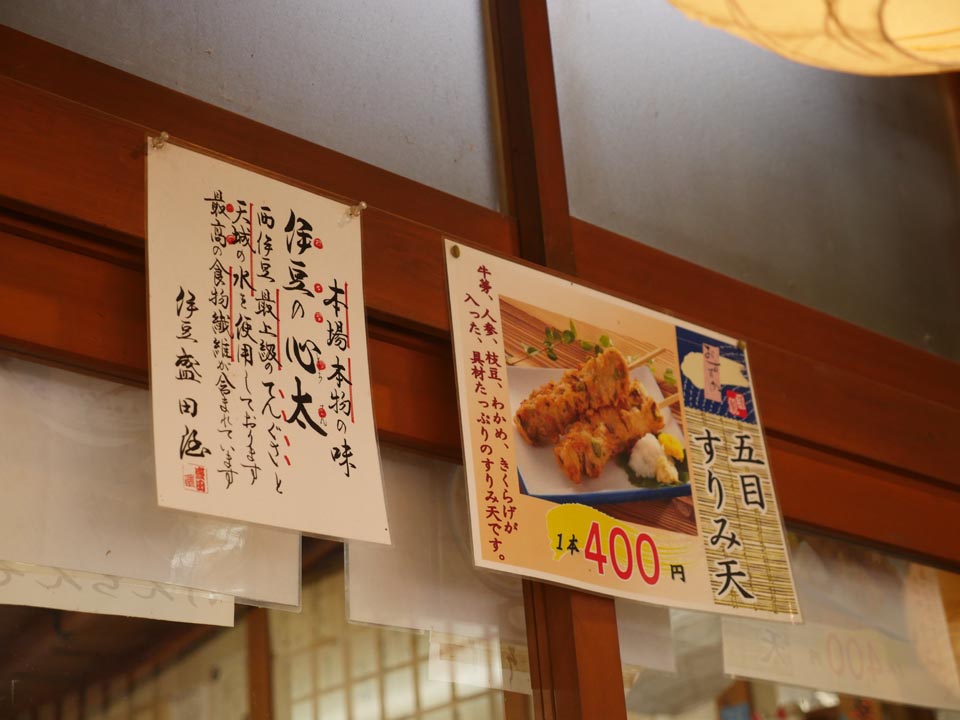 本場本物の味
伊豆の心太
西伊豆最上級のてんぐさと
天城の水を使用しております
最高の食物繊維が含まれています
伊豆盛田屋
五目
すりみ天
牛蒡、人参、枝豆、わかめ、きくらげが
入った、具材たっぷりのすりみ天です。
1本400円